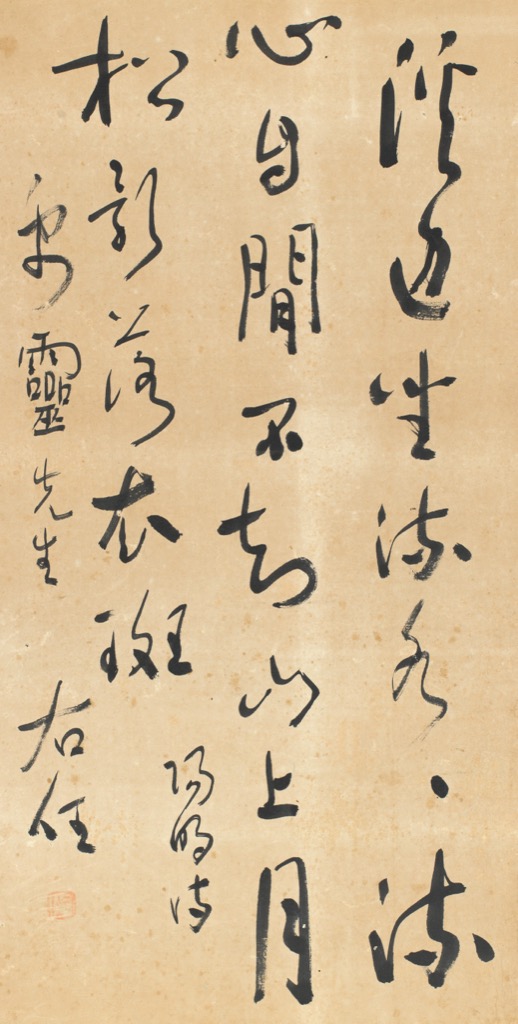 溪邊坐流水、流
心自閒不知山上月
松影落衣斑
陽明詩
靈先生
右任